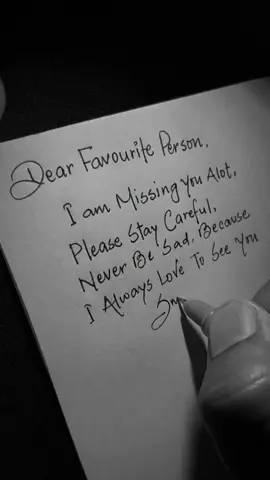 Dear Favourite Person,
I am Missing You Alot,
Please Stay Careful,
Never Be Sad, Because
I Always Love To See You